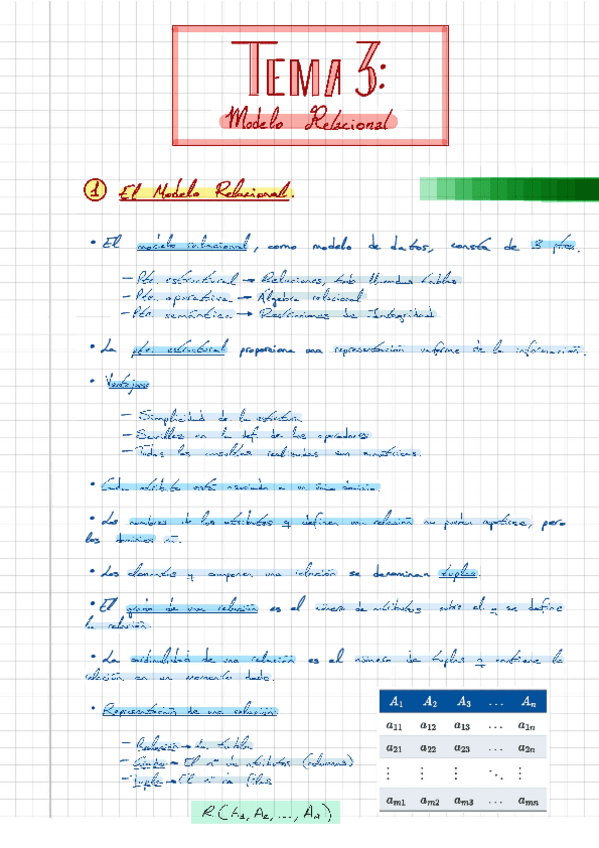 TEMA 3:
Modelo Relacional
1 El Modelo Relacional.
• El modelo relacional, como modelo de datos, consta de 3 ptes.
– Pte. estructural → Relaciones, tab llamadas tablas
– Pte. operativa → Álgebra relacional
– Pte. semántica → Restricciones de Integridad
• La pte. estructural proporciona una representación uniforme de la información.
• Ventajas
– Simplicidad de la estructura
– Sencillez en la def. de los operadores
– Todas las consultas realizadas son
• Cada atributo está asociado a un único dominio.
• Los nombres de los atributos q definen una relación no pueden repetirse, pero
los dominios sí.
• Los elementos q componen una relación se denominan tuplas.
• El grado de una relación es el número de atributos sobre el q se define
la relación.
• La cardinalidad de una relación es el número de tuplas q contiene la
relación en un momento dado.
• Representación de una relación
– Relación → La tabla
– Grado → El nº de atributos (columnas)
– Tupla → El nº de filas
R(A1, A2, ..., An)
A1 A2 A3 ... An
a11 a12 a13 ... a1n
a21 a22 a23 ... a2n
⋮ ⋮ ⋮ ⋱ ⋮
am1 am2 am3 ... amn